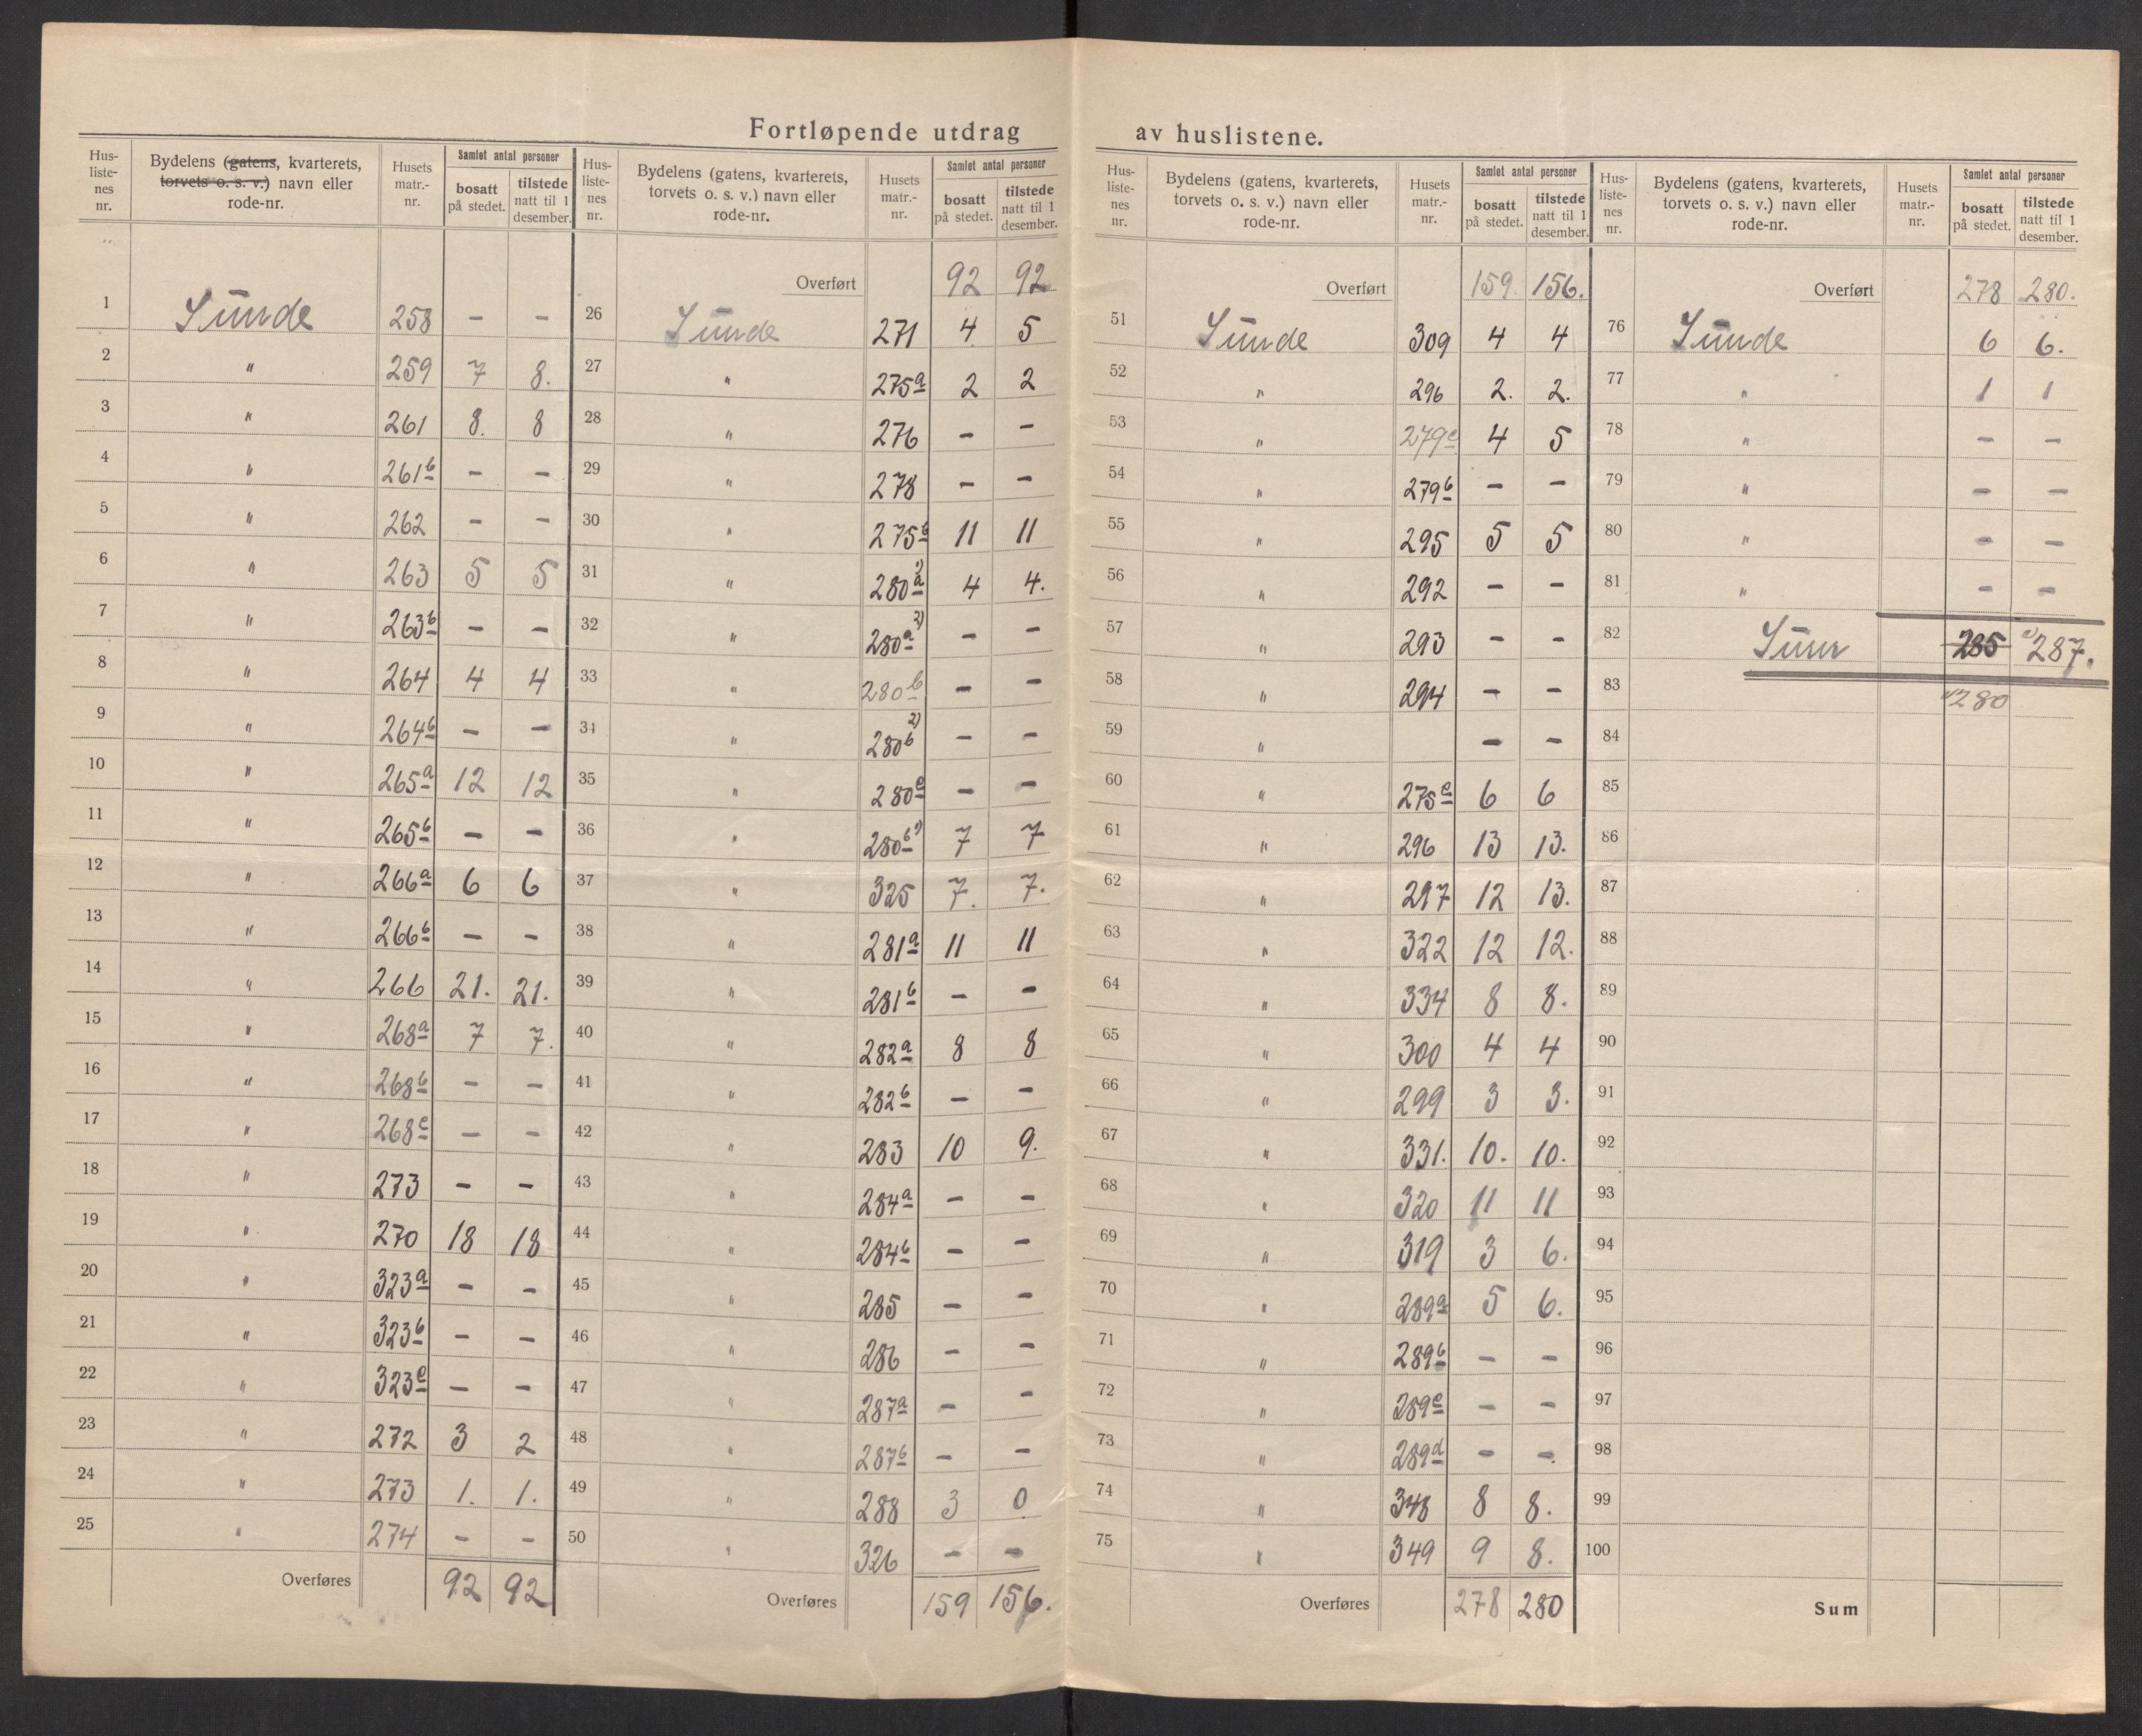 Fortløpende utdrag av huslistene.
Hus-listenes nr. | Bydelens (gatens, kvarterets, torvets o. s. v.) navn eller rode-nr. | Husets matr.-nr. | Samlet antal personer bosatt på stedet. | tilstede natt til 1 desember.
1 Sunde 258 – –
2 " 259 7 8.
3 " 261 8. 8
4 " 261b – –
5 " 262 – –
6 " 263 5 5
7 " 263b – –
8 " 264 4 4
9 " 264b – –
10 " 265a 12 12
11 " 265b – –
12 " 266a 6 6
13 " 266b – –
14 " 266 21. 21.
15 " 268a 7 7.
16 " 268b – –
17 " 268c – –
18 " 273 – –
19 " 270 18 18
20 " 323a – –
21 " 323b – –
22 " 323c – –
23 " 272 3 2
24 " 273 1. 1.
25 " 274 – –
Overføres 92 92
Hus-listenes nr. | Bydelens (gatens, kvarterets, torvets o. s. v.) navn eller rode-nr. | Husets matr.-nr. | Samlet antal personer bosatt på stedet. | tilstede natt til 1 desember.
Overført 92 92
26 Sunde 271 4 5
27 " 275a 2 2
28 " 276 – –
29 " 278 – –
30 " 275b 11 11
31 " 280a 1) 4 4.
32 " 280a 2) – –
33 " 280b – –
34 " 280b 2) – –
35 " 280c – –
36 " 280b 7 7
37 " 325 7. 7.
38 " 281a 11 11
39 " 281b – –
40 " 282a 8 8
41 " 282b – –
42 " 283 10 9.
43 " 284a – –
44 " 284b – –
45 " 285 – –
46 " 286 – –
47 " 287a – –
48 " 287b – –
49 " 288 3 0
50 " 326 – –
Overføres 159 156.
Hus-listenes nr. | Bydelens (gatens, kvarterets, torvets o. s. v.) navn eller rode-nr. | Husets matr.-nr. | Samlet antal personer bosatt på stedet. | tilstede natt til 1 desember.
Overført 159. 156.
51 Sunde 309 4 4
52 " 296 2. 2.
53 " 279c 4 5
54 " 279b – –
55 " 295 5 5
56 " 292 – –
57 " 293 – –
58 " 294 – –
59 " – –
60 " 275c 6 6
61 " 296 13 13.
62 " 297 12 13.
63 " 322 12 12.
64 " 334 8 8.
65 " 300 4 4
66 " 299 3 3.
67 " 331. 10. 10.
68 " 320 11 11
69 " 319 3 6.
70 " 289a 5 6.
71 " 289b – –
72 " 289c – –
73 " 289d – –
74 " 348 8 8.
75 " 349 9 8.
Overføres 278 280
Hus-listenes nr. | Bydelens (gatens, kvarterets, torvets o. s. v.) navn eller rode-nr. | Husets matr.-nr. | Samlet antal personer bosatt på stedet. | tilstede natt til 1 desember.
Overført 278 280.
76 Sunde 6 6.
77 " 1 1
78 " – –
79 " – –
80 " – –
81 " – –
82 Sum 285 287.
83 280
84
85
86
87
88
89
90
91
92
93
94
95
96
97
98
99
100
Sum